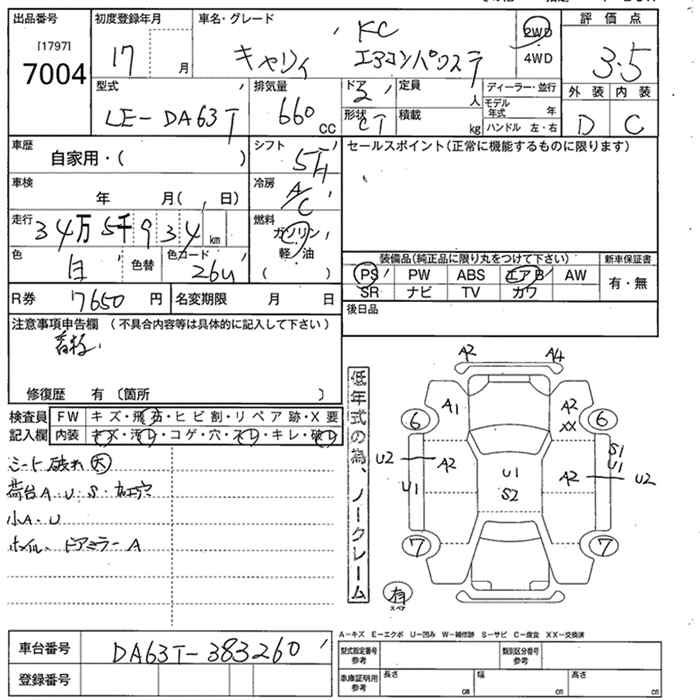 出品番号 初度登録年月 車名・グレード 評価点
[1797]
7004
17 月
キャリィ KC エアコンパワステ
2WD
4WD
3.5
型式 排気量 ドア 定員 ディーラー・並行 外装 内装
LE-DA63T 660 cc 2 人 モデル年式 年
形状 CT 積載 kg ハンドル 左・右 D C
車歴 シフト セールスポイント(正常に機能するものに限ります)
自家用・( ) 5F
車検 年 月( 日) 冷房 A/C
走行 34万5千934km 燃料
ガソリン
軽・油
( )
色 白 色替 色コード 26U
装備品(純正品に限り丸をつけて下さい) 新車保証書
PS PW ABS エアB AW 有・無
SR ナビ TV カワ
R券 7650円 名変期限 月 日 後日品
注意事項申告欄 (不具合内容等は具体的に記入して下さい)
修復歴 有 〔箇所 〕
検査員 FW キズ・飛石・ヒビ割・リペア跡・X要
記入欄 内装 キズ・汚レ・コゲ・穴・スレ・キレ・破レ
シート破れ 大
荷台A・U・S・加工穴
小A・U
ホイル、ドアミラーA
低年式の為、ノークレーム
A2 A4
A1 A2 XX
6 6
U2 A2 U1 U1 S2 A2 S1 U1 U2
7 7
有
スペア
A-キズ E-エクボ U-凹み W-補修跡 S-サビ C-腐食 XX-交換済
車台番号 DA63T-383260
型式指定番号 参考 類別区分番号 参考
登録番号
車庫証明用 参考 長さ cm 幅 cm 高さ cm